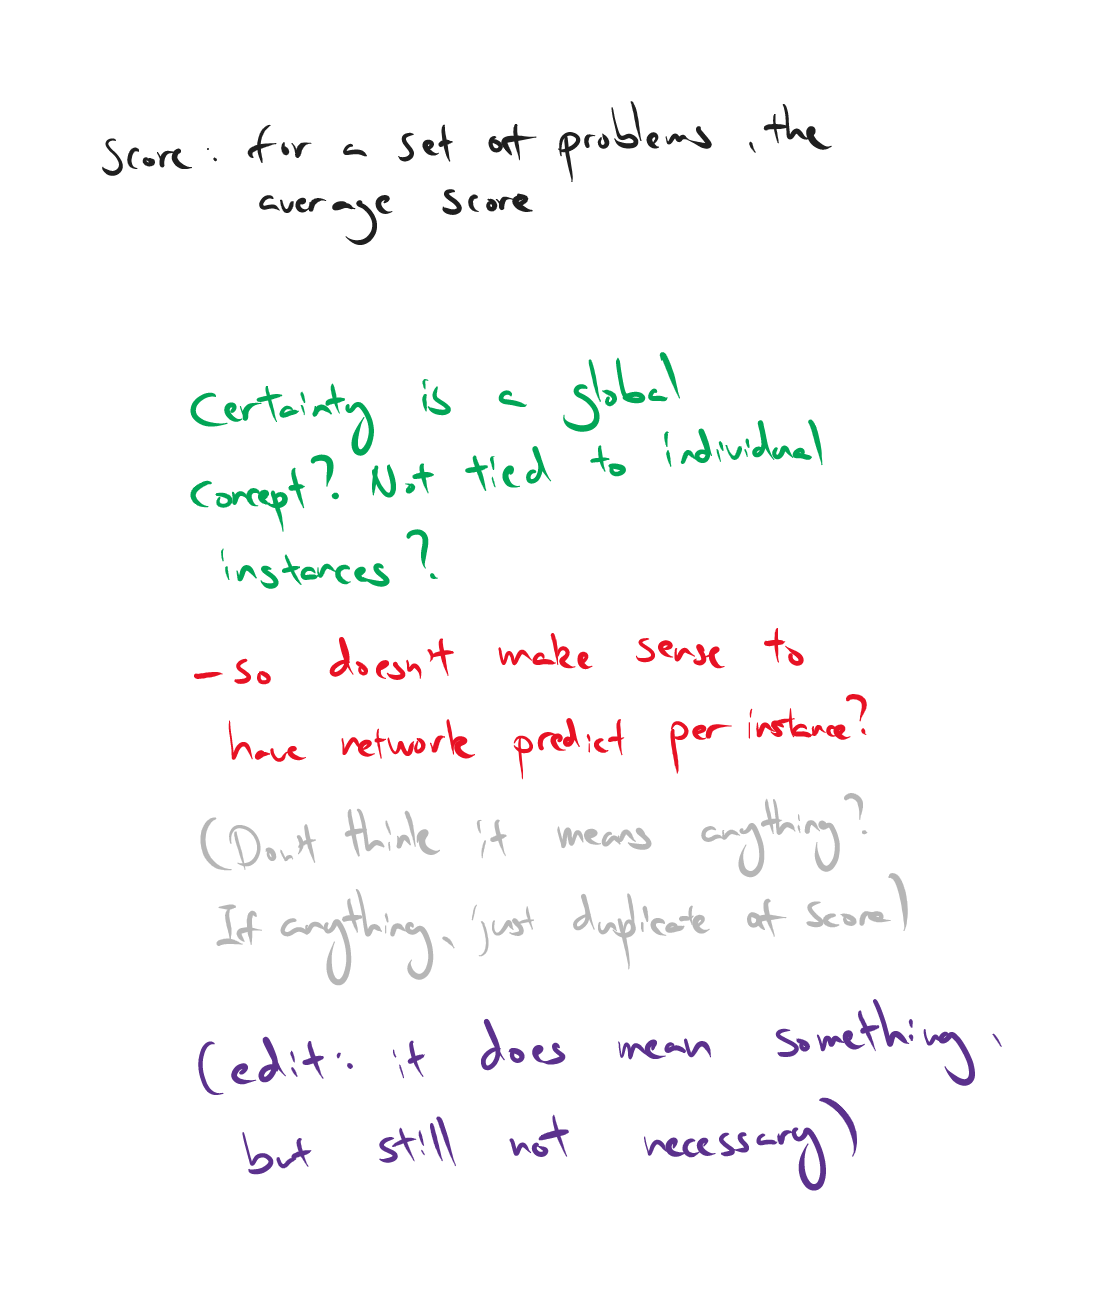 Score: for a set of problems, the
average score
Certainty is a global
concept? Not tied to individual
instances?
- so doesn't make sense to
have network predict per instance?
(Don't think it means anything?
If anything, just duplicate of score)
(edit: it does mean something,
but still not necessary)